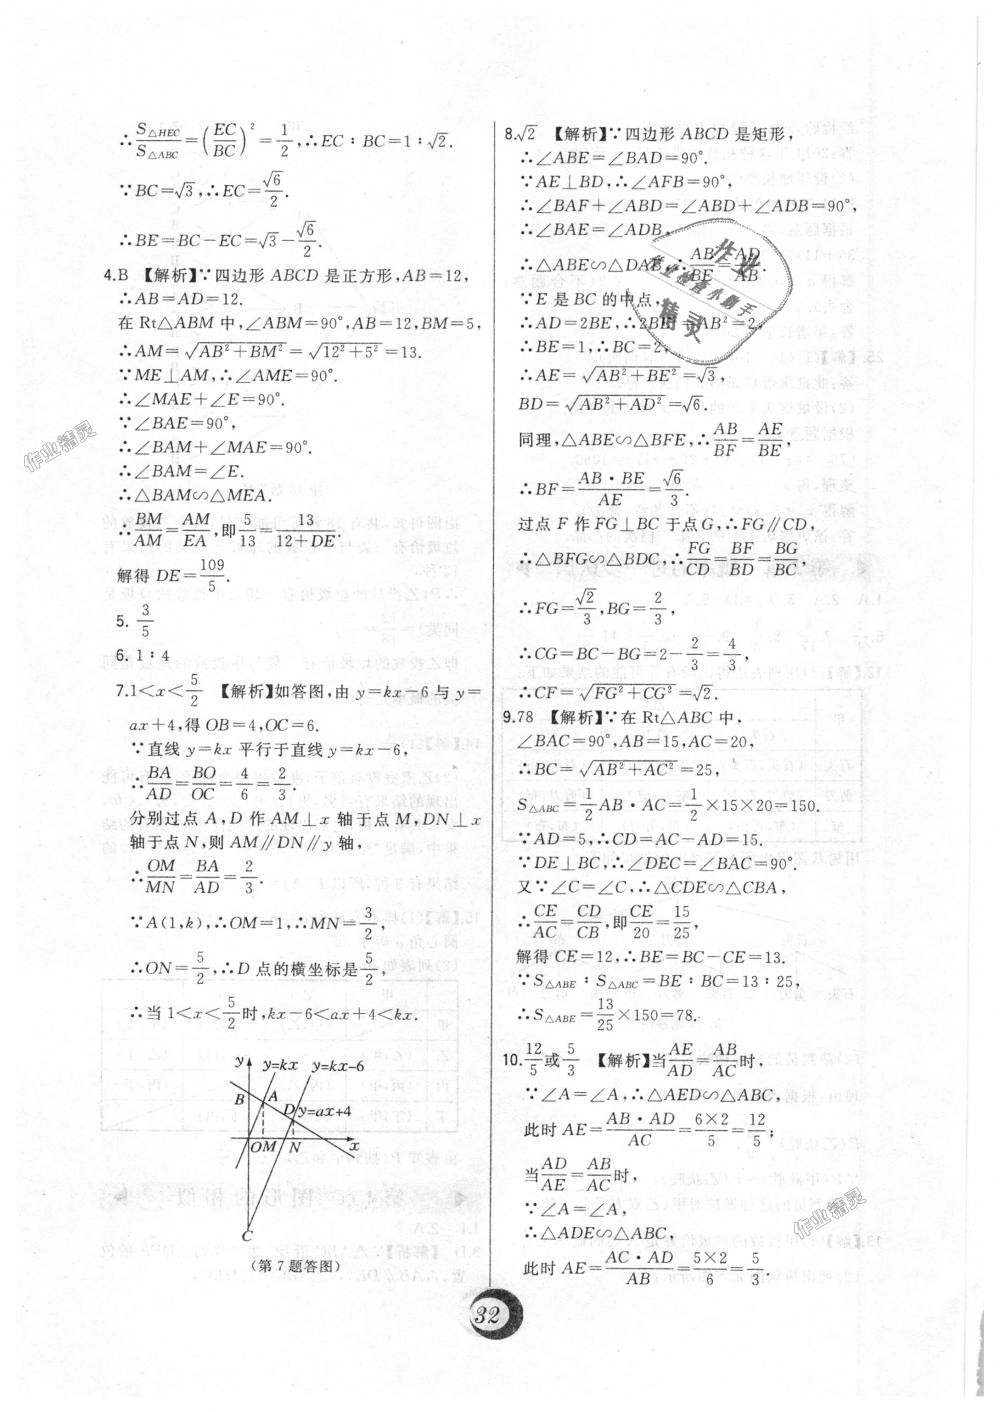 ∴S△HEC/S△ABC=(EC/BC)²=1/2,∴EC∶BC=1∶√2.
∵BC=√3,∴EC=√6/2.
∴BE=BC-EC=√3-√6/2.
4.B 【解析】∵四边形ABCD是正方形,AB=12,
∴AB=AD=12.
在Rt△ABM中,∠ABM=90°,AB=12,BM=5,
∴AM=√(AB²+BM²)=√(12²+5²)=13.
∵ME⊥AM,∴∠AME=90°.
∴∠MAE+∠E=90°.
∵∠BAE=90°,
∴∠BAM+∠MAE=90°.
∴∠BAM=∠E.
∴△BAM∽△MEA.
∴BM/AM=AM/EA,即5/13=13/(12+DE).
解得DE=109/5.
5. 3/5
6.1∶4
7.1<x<5/2 【解析】如答图,由y=kx-6与y=
ax+4,得OB=4,OC=6.
∵直线y=kx平行于直线y=kx-6,
∴BA/AD=BO/OC=4/6=2/3.
分别过点A,D作AM⊥x轴于点M,DN⊥x
轴于点N,则AM∥DN∥y轴,
∴OM/MN=BA/AD=2/3.
∵A(1,k),∴OM=1,MN=3/2,
∴ON=5/2,∴D点的横坐标是5/2,
∴当1<x<5/2时,kx-6<ax+4<kx.
y y=kx y=kx-6
B A
D y=ax+4
O M N x
C
(第7题答图)
8.√2 【解析】∵四边形ABCD是矩形,
∴∠ABE=∠BAD=90°.
∵AE⊥BD,∴∠AFB=90°,
∴∠BAF+∠ABD=∠ABD+∠ADB=90°,
∴∠BAE=∠ADB,
∴△ABE∽△DAB,∴AB/BE=AD/AB.
∵E是BC的中点,
∴AD=2BE,∴2BE²=AB²=2,
∴BE=1,∴BC=2,
∴AE=√(AB²+BE²)=√3,
BD=√(AB²+AD²)=√6.
同理,△ABE∽△BFE,∴AB/BF=AE/BE,
∴BF=AB·BE/AE=√6/3.
过点F作FG⊥BC于点G,∴FG∥CD,
∴△BFG∽△BDC,∴FG/CD=BF/BD=BG/BC,
∴FG=√2/3,BG=2/3,
∴CG=BC-BG=2-2/3=4/3,
∴CF=√(FG²+CG²)=√2.
9.78 【解析】∵在Rt△ABC中,
∠BAC=90°,AB=15,AC=20,
∴BC=√(AB²+AC²)=25,
S△ABC=1/2AB·AC=1/2×15×20=150.
∵AD=5,∴CD=AC-AD=15.
∵DE⊥BC,∴∠DEC=∠BAC=90°.
又∵∠C=∠C,∴△CDE∽△CBA,
∴CE/AC=CD/CB,即CE/20=15/25,
解得CE=12,∴BE=BC-CE=13.
∵S△ABE∶S△ABC=BE∶BC=13∶25,
∴S△ABE=13/25×150=78.
10.12/5或5/3 【解析】当AE/AD=AB/AC时,
∵∠A=∠A,∴△AED∽△ABC,
此时AE=AB·AD/AC=6×2/5=12/5;
当AD/AE=AB/AC时,
∵∠A=∠A,
∴△ADE∽△ABC,
此时AE=AC·AD/AB=5×2/6=5/3.
32
作业
作业检查小助手
精灵
作业精灵
作业精灵